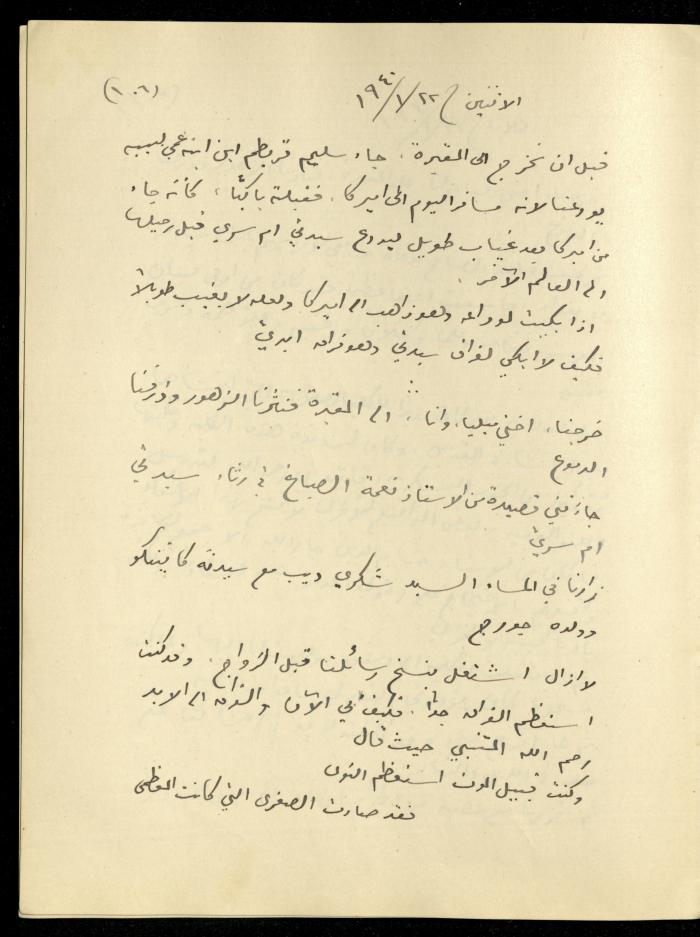 (١٠٦)
الاثنين ٢٢/١/١٩٤٠
قبل ان نخرج الى المقبرة، جاء سليم قريطم ابن ابنة عمي لبيبه
يودعنا لانه مسافر اليوم الى اميركا. فقبلته باكيًا، كأنه جاء
من اميركا بعد غياب طويل ليودع سيدتي ام سري قبل رحيلها
الى العالم الآخر.
اذا بكيت لوداعه وهو ذاهب الى اميركا ولعله لا يغيب طويلاً
فكيف لا ابكي لفراق سيدتي وهو فراق ابديّ
خرجنا، اختي ميليا، وانا، الى المقبرة فنثرنا الزهور وذرفنا
الدموع
جاءتني قصيدة من الاستاذ نعمة الصباغ في رثاء سيدتي
ام سريّ
زارنا في المساء السيد شكري ديب مع سيدته كاتنكو
وولده جورج
لا ازال اشتغل بنسخ رسائلنا قبل الزواج. وقد كنت
استعظم الفراق جدًّا. فكيف بي الآن والفراق الى الابد
رحم الله المتنبي حيث قال
وكنت قبيل الموت استعظم النوى
فقد صارت الصغرى التي كانت العظمى